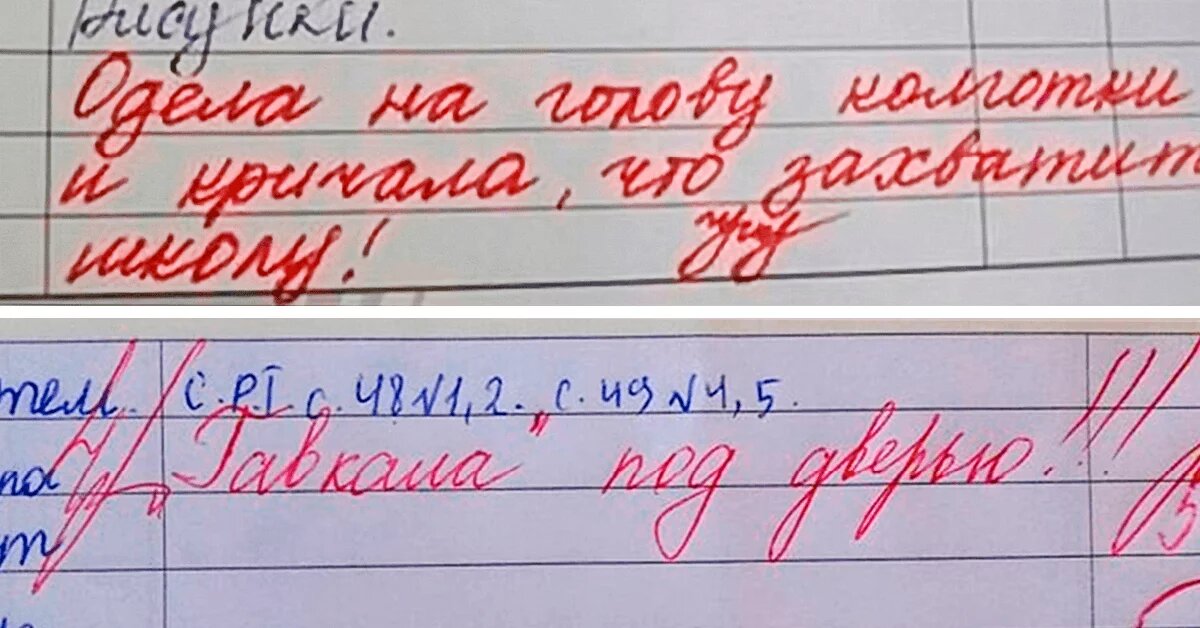 Рисунки.
Одела на голову колготки
и кричала, что захватит
школу!
тел. с. Р.Т с. 48 №1, 2. с. 49 №4, 5.
"Гавкала" под дверью!!!